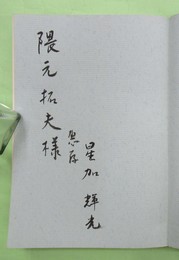 隈元拓夫様
恵存
星加輝光